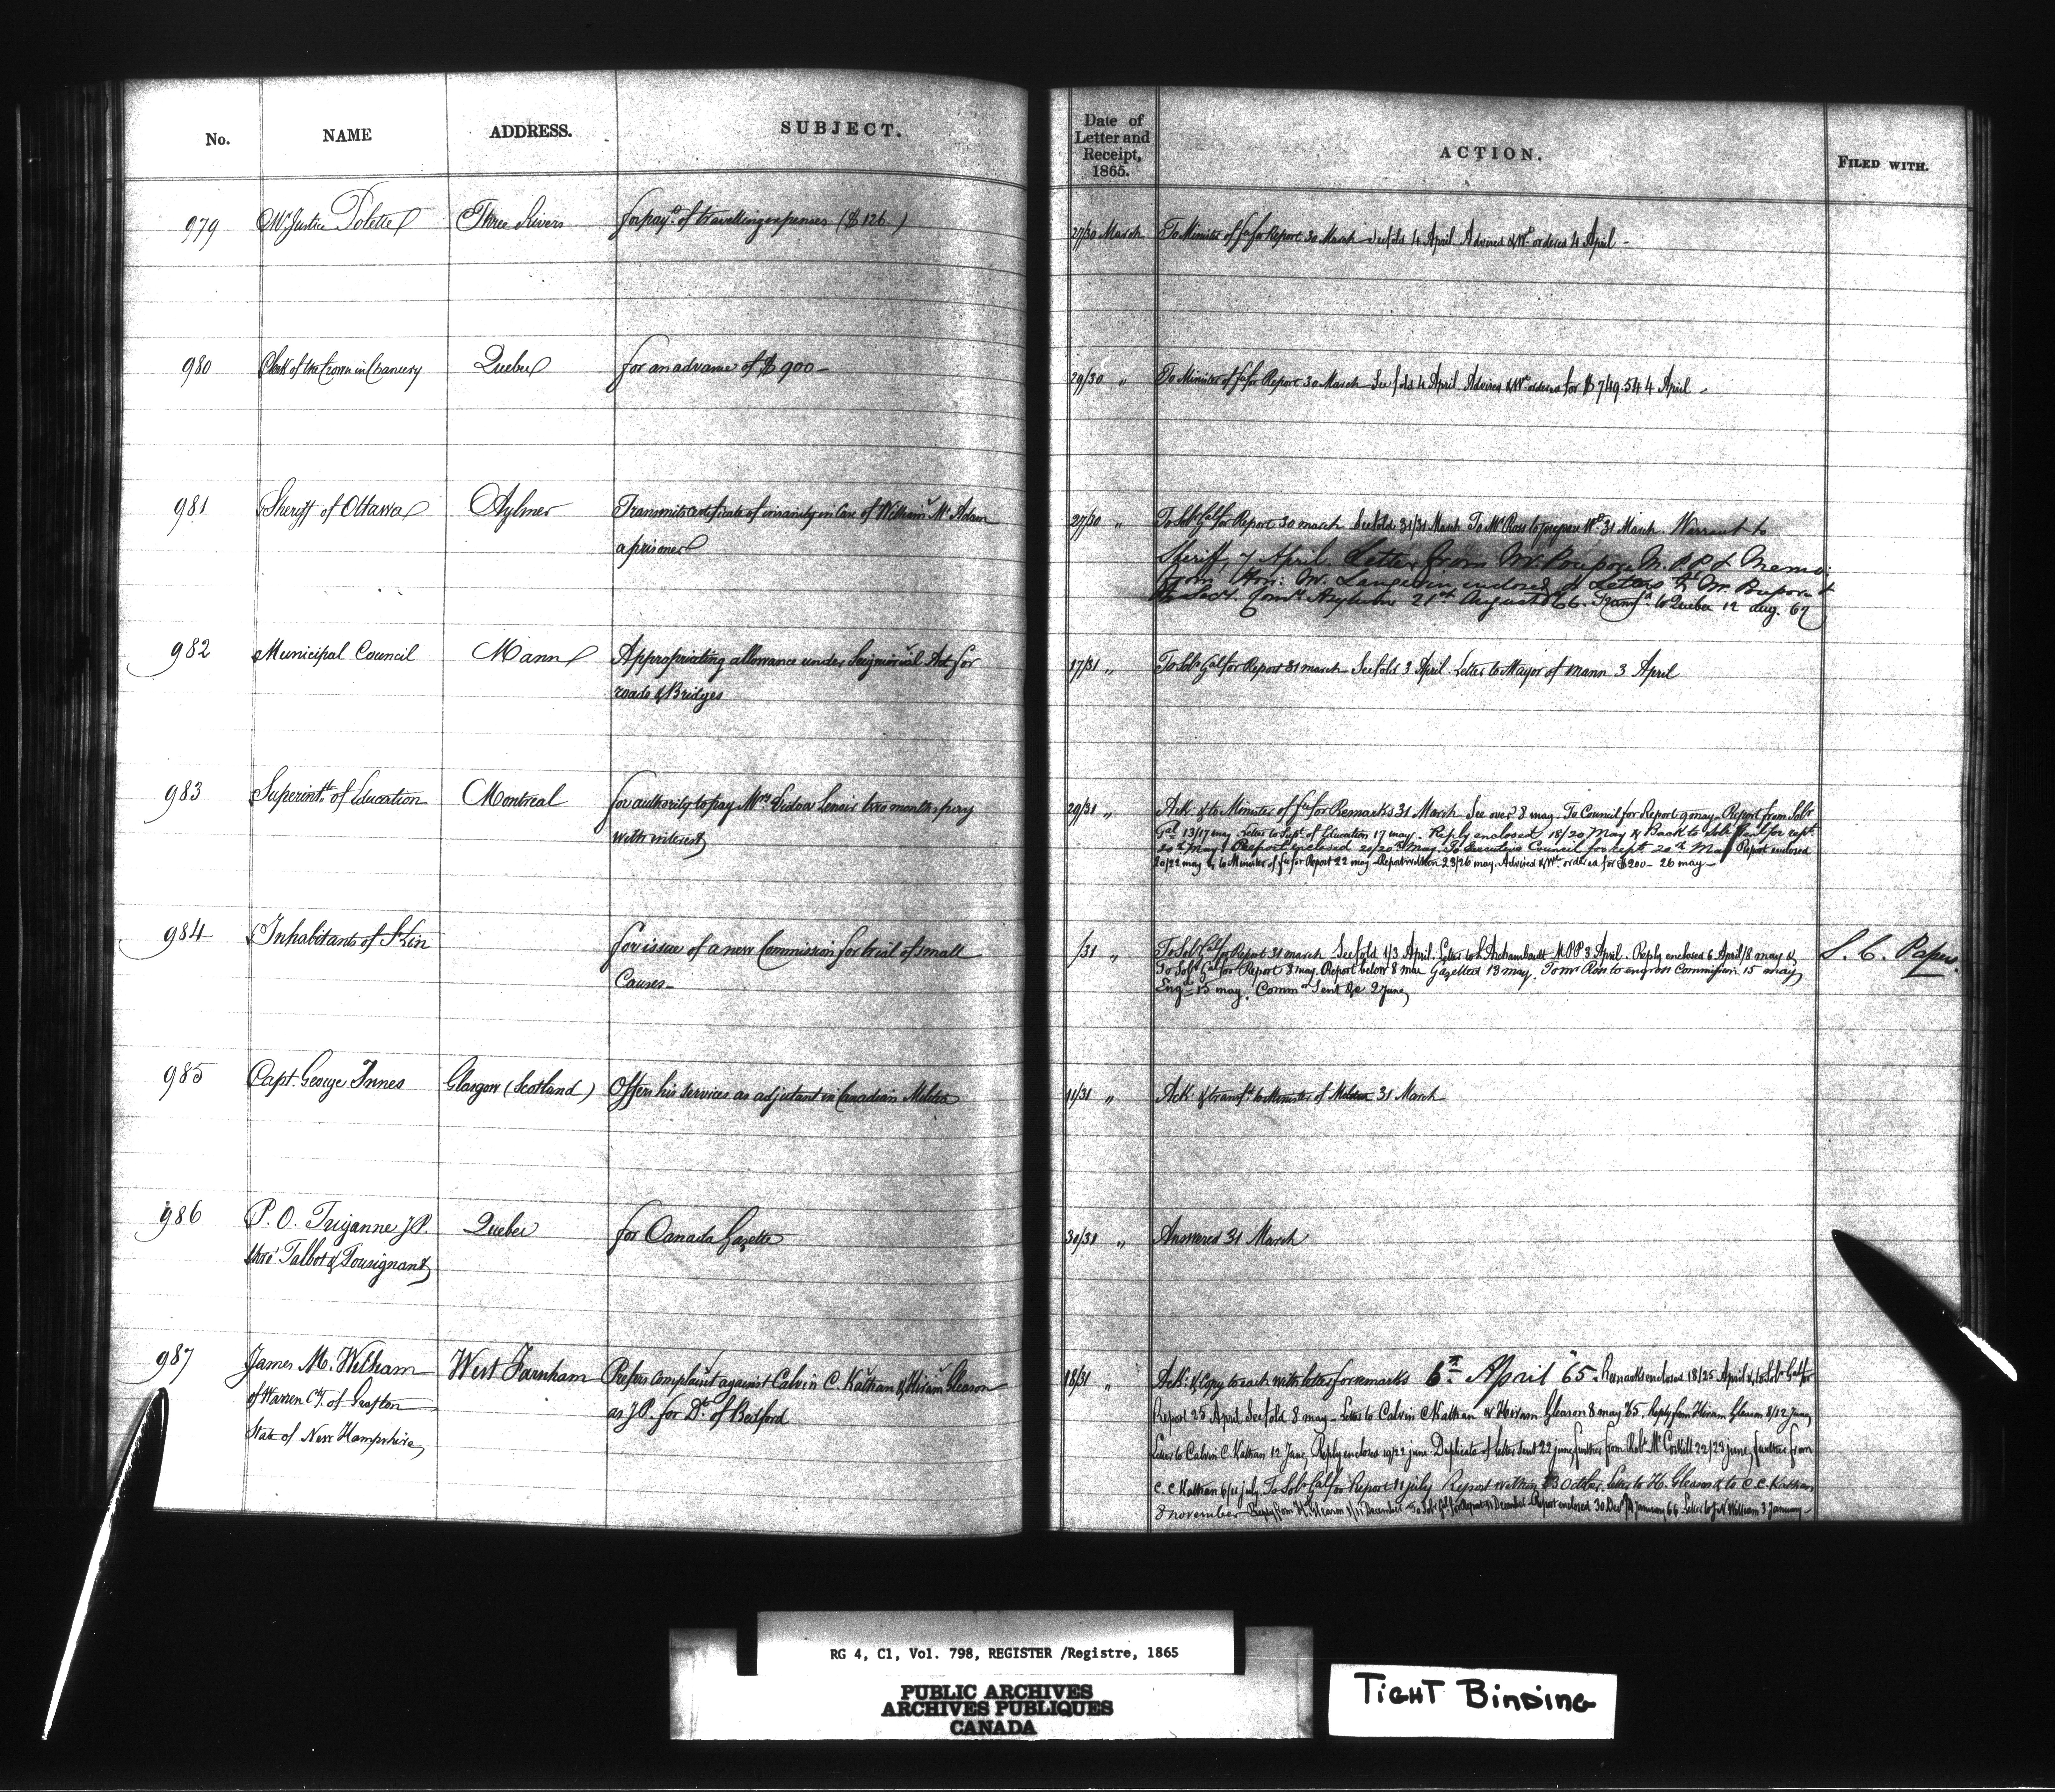 No. NAME ADDRESS. SUBJECT.
979 Mr Justice Polette Three Rivers for payt of travelling expenses ($126)
980 Clerk of the Crown in Chancery Quebec for an advance of $900-
981 Sheriff of Ottawa Aylmer Transmits certificate of insanity in Case of William McAdam
a prisoner
982 Municipal Council Mann Appropriating allowance under Seigniorial Act for
roads & Bridges
983 Superintt of Education Montreal for authority to pay Mrs Lenoir two months
with interest
984 Inhabitants of St Lin for issue of a new Commission for trial of small
Causes-
985 Capt. George Innes Glasgow (Scotland) Offers his services as adjutant in Canadian Militia
986 P. O. Triganne J.P. Quebec for Canada Gazette
thro' Talbot & Tousignant
987 James M. Williams West Farnham Prefers complaint against Calvin C. Kathan & Hiram Gleason
of Warren Cy. of Grafton as J.P. for Dt. of Bedford
State of New Hampshire
Date of
Letter and
Receipt,
1865.
ACTION.
FILED WITH.
27/30 March To Minister of fce for Report 30 March See fold 4 April Advised & Wt ordered 4 April -
29/30 " To Minister of fce for Report 30 March See fold 4 April Advised & Wt ordered for $749.54 4 April -
27/30 " To Solr Gal for Report 30 march See fold 31/31 March To Mr Ross to prepare Wt 31 March. Warrant to
Sheriff, 7 April. Letter from Mr. Poupore M.P.P & Memo:
from Hon: Mr. Langevin, enclosed & Letters to Mr. Poupore &
Asylum 21st August 66. Transfd to Quebec 12 Aug. 67
17/31 " To Solr Gal for Report 31 march See fold 3 April. Letter to Mayor of Mann 3 April
29/31 " Ack: & to Minister of fce for Remarks 31 March See over 8 may. To Council for Report 9 may - Report from Solr
Gal 13/17 may Letter to Supt of Education 17 may. Reply enclosed 18/20 May & Back to Solr Genl for rept
20th May. Report enclosed 20/20th May. To Executive Council for rept. 20th May Report enclosed
20/22 may & to Minister of fce for Report 22 may Report within 23/26 may. Advised & Wt ordered for $200- 26 may-
/31 " To Solr Gal for Report 31 march See fold 1/3 April. Letter to L Archambault M.P.P 3 April. Reply enclosed 6 April/8 may & S. C. Papers.
To Solr Gal for Report 8 may. Report below 8 may Gazetted 13 may. To Mr Ross to engross Commission 15 may
Engd 15 may. Commn Sent &c 2 June
11/31 " Ack: & transfd to Minister of Militia 31 March
30/31 " Answered 31 March
18/31 " Ack: & Copy to each with letter for remarks 6th April 65. Remarks enclosed 18/25 April & to Solr Gal for
Report 25 April See fold 8 may - Letter to Calvin C Kathan & Hiram Gleason 8 may 65. Reply from Hiram Gleason 8/12 June,
Letter to Calvin C. Kathan 12 June, Reply enclosed 19/22 june Duplicate of letter sent 22 june, further from Robt McCorkill 22/23 june, further from
C. C Kathan 6/11 july. To Solr Gal for Report 11 july Report within October. Letter to H. Gleason & to C. C. Kathan
8 november - Reply from H. Gleason 1/11 December - To Solr Gal for Report 11 December - Report enclosed 30 Decr January 66 Letter to J M William 3 January -
RG 4, C1, Vol. 798, REGISTER /Registre, 1865
PUBLIC ARCHIVES
ARCHIVES PUBLIQUES
CANADA
TIGHT BINDING